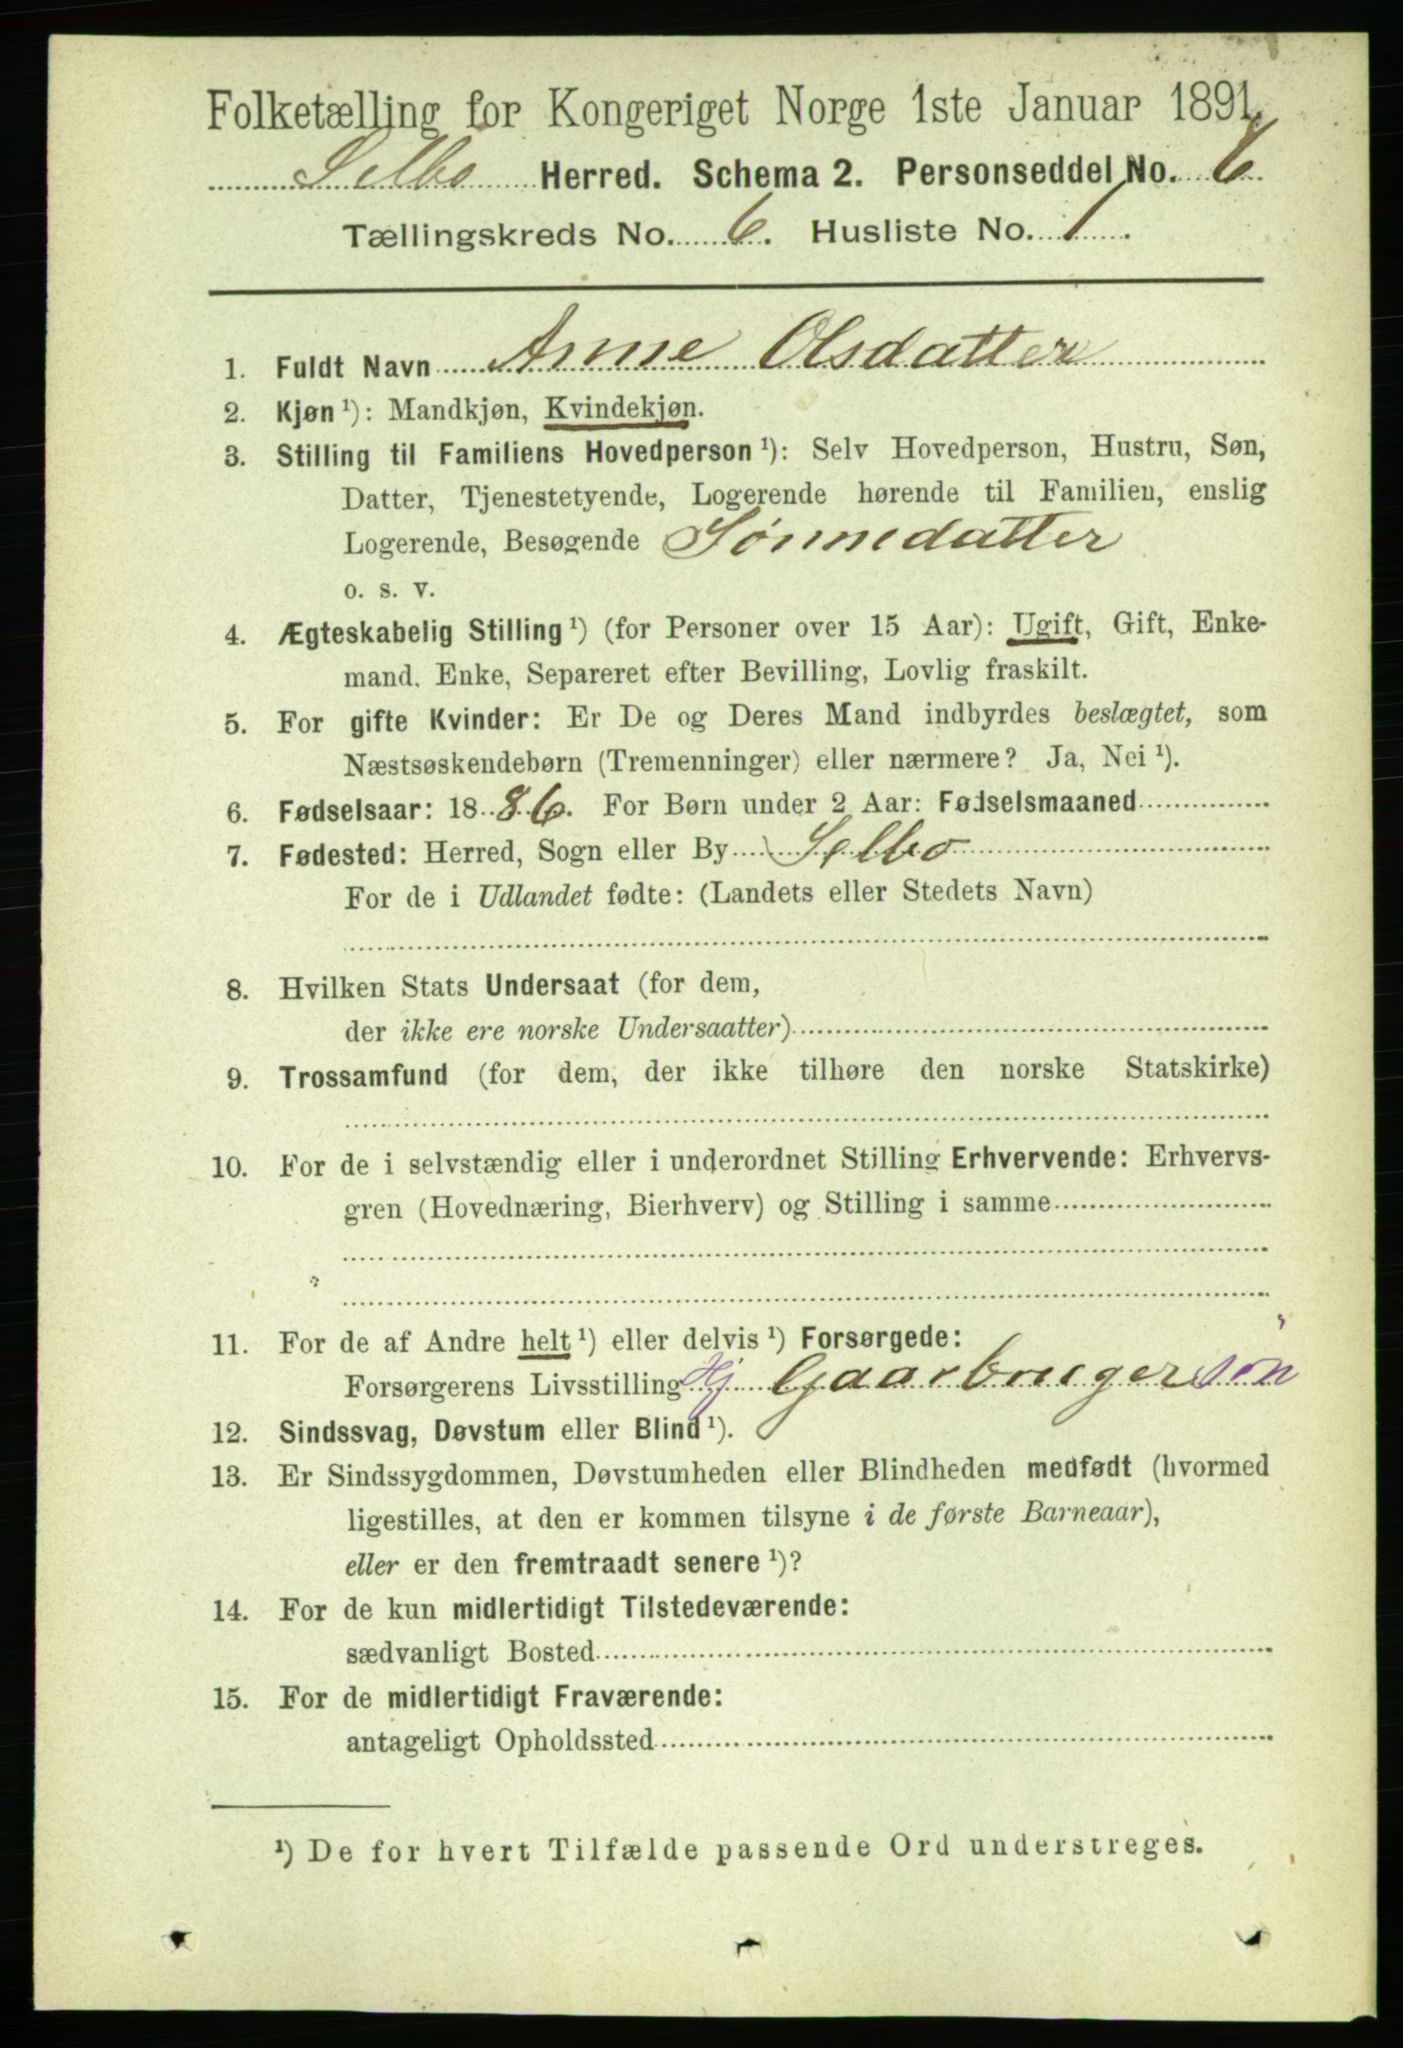 Folketælling for Kongeriget Norge 1ste Januar 1891.
Selbo Herred. Schema 2. Personseddel No. 6.
Tællingskreds No. 6. Husliste No. 1.
1. Fuldt Navn Anne Olsdatter
2. Kjøn ¹): Mandkjøn, Kvindekjøn.
3. Stilling til Familiens Hovedperson ¹): Selv Hovedperson, Hustru, Søn,
Datter, Tjenestetyende, Logerende hørende til Familien, enslig
Logerende, Besøgende Sønnedatter
o. s. v.
4. Ægteskabelig Stilling ¹) (for Personer over 15 Aar): Ugift, Gift, Enke-
mand. Enke, Separeret efter Bevilling, Lovlig fraskilt.
5. For gifte Kvinder: Er De og Deres Mand indbyrdes beslægtet, som
Næstsøskendebørn (Tremenninger) eller nærmere? Ja, Nei ¹).
6. Fødselsaar: 1886. For Børn under 2 Aar: Fødselsmaaned
7. Fødested: Herred, Sogn eller By Selbo
For de i Udlandet fødte: (Landets eller Stedets Navn)
8. Hvilken Stats Undersaat (for dem,
der ikke ere norske Undersaatter)
9. Trossamfund (for dem, der ikke tilhøre den norske Statskirke)
10. For de i selvstændig eller i underordnet Stilling Erhvervende: Erhvervs-
gren (Hovednæring, Bierhverv) og Stilling i samme
11. For de af Andre helt ¹) eller delvis ¹) Forsørgede:
Forsørgerens Livsstilling Hj Gaarbrugersøn
12. Sindssvag, Døvstum eller Blind ¹).
13. Er Sindssygdommen, Døvstumheden eller Blindheden medfødt (hvormed
ligestilles, at den er kommen tilsyne i de første Barneaar),
eller er den fremtraadt senere ¹)?
14. For de kun midlertidigt Tilstedeværende:
sædvanligt Bosted
15. For de midlertidigt Fraværende:
antageligt Opholdssted
¹) De for hvert Tilfælde passende Ord understreges.